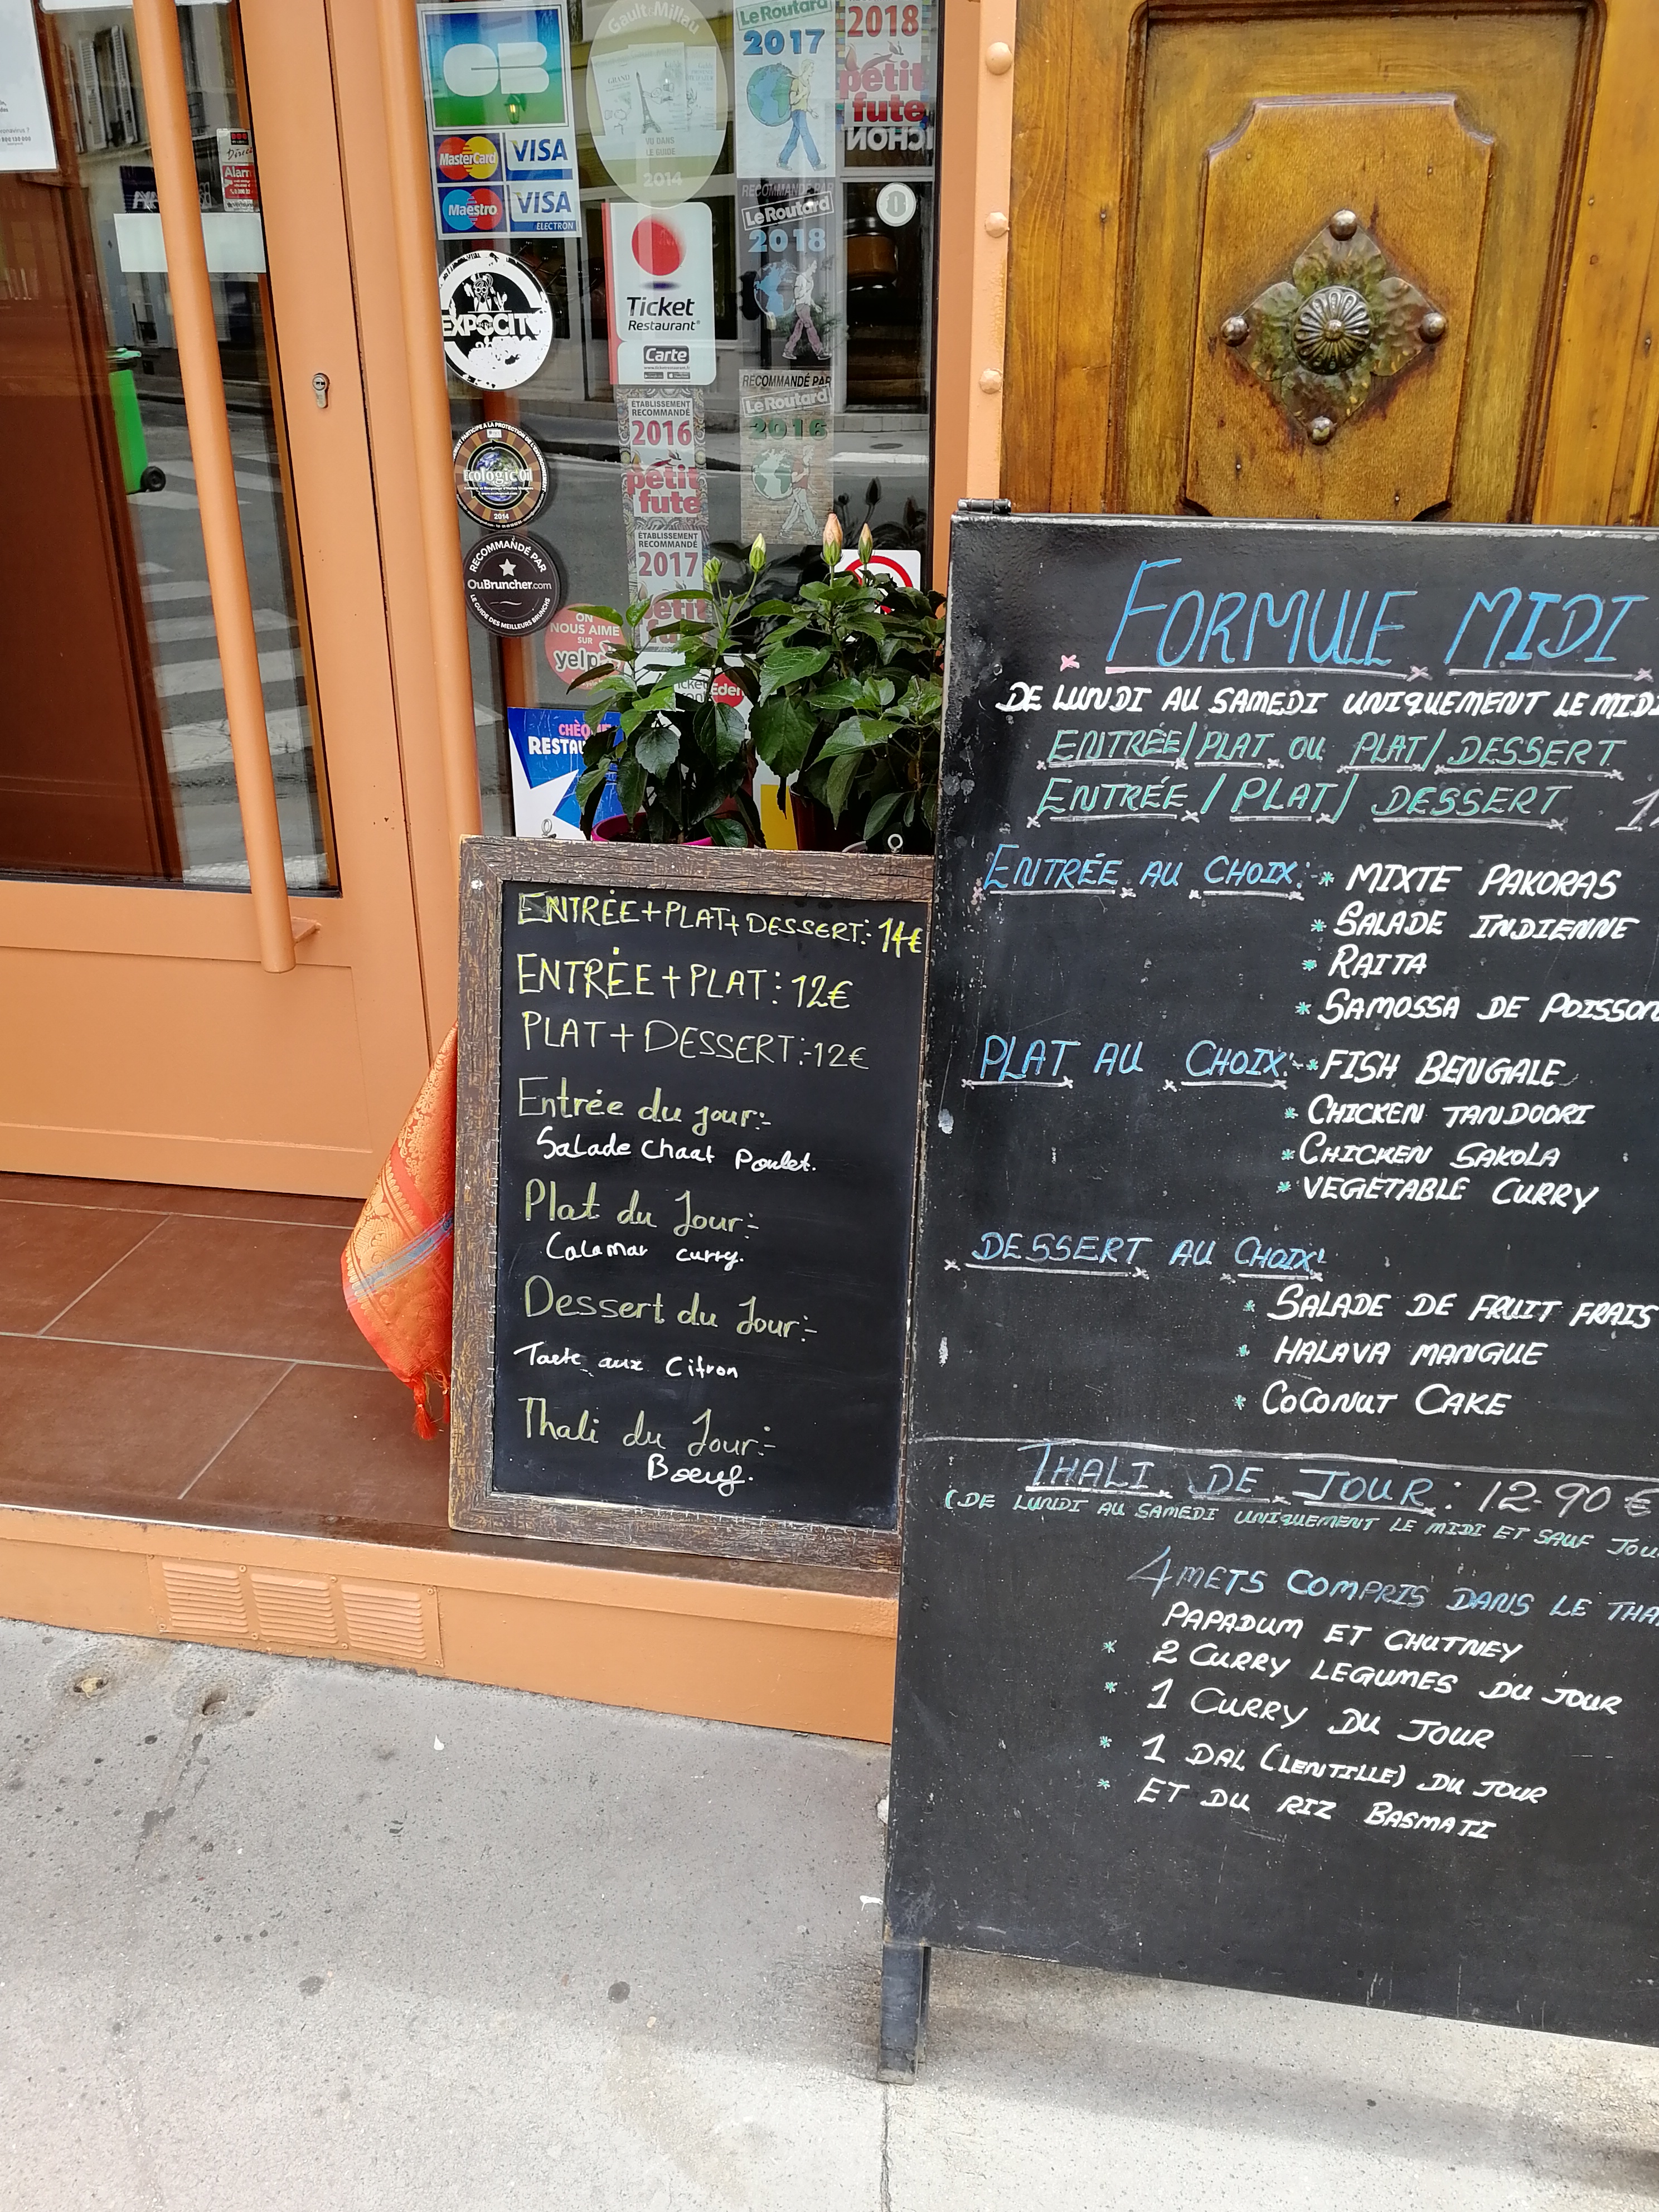 CB
MasterCard
VISA
Maestro
VISA
ELECTRON
Gault&Millau
VU DANS
LE GUIDE
2014
Le Routard
2017
2018
petit
fute
RECOMMANDÉ PAR
Le Routard
2018
Ticket
Restaurant®
Carte
RECOMMANDÉ PAR
Le Routard
2016
ETABLISSEMENT
RECOMMANDÉ
2016
petit
fute
ETABLISSEMENT
RECOMMANDÉ
2017
petit
fute
Ecologic Oil
2014
RECOMMANDÉ PAR
OuBruncher.com
LE GUIDE DES MEILLEURS BRUNCHS
ON
NOUS AIME
SUR
yelp
ENTRÉE+PLAT+DESSERT: 14€
ENTRÉE+PLAT: 12€
PLAT+DESSERT:-12€
Entrée du jour:-
Salade Chaat Poulet.
Plat du Jour:-
Calamar curry.
Dessert du Jour:-
Tarte aux Citron
Thali du Jour:-
Boeuf.
FORMULE MIDI
DE LUNDI AU SAMEDI UNIQUEMENT LE MIDI
ENTRÉE/PLAT OU PLAT/DESSERT
ENTRÉE/PLAT/DESSERT
ENTRÉE AU CHOIX:-* MIXTE PAKORAS
* SALADE INDIENNE
* RAITA
* SAMOSSA DE POISSON
PLAT AU CHOIX:-* FISH BENGALE
* CHICKEN TANDOORI
* CHICKEN SAKOLA
* VEGETABLE CURRY
DESSERT AU CHOIX:
* SALADE DE FRUIT FRAIS
* HALAVA MANGUE
* COCONUT CAKE
THALI DE JOUR: 12-90€
(DE LUNDI AU SAMEDI UNIQUEMENT LE MIDI ET SAUF
4 METS COMPRIS DANS LE
PAPADUM ET CHUTNEY
* 2 CURRY LEGUMES DU JOUR
* 1 CURRY DU JOUR
* 1 DAL (LENTILLE) DU JOUR
* ET DU RIZ BASMATI